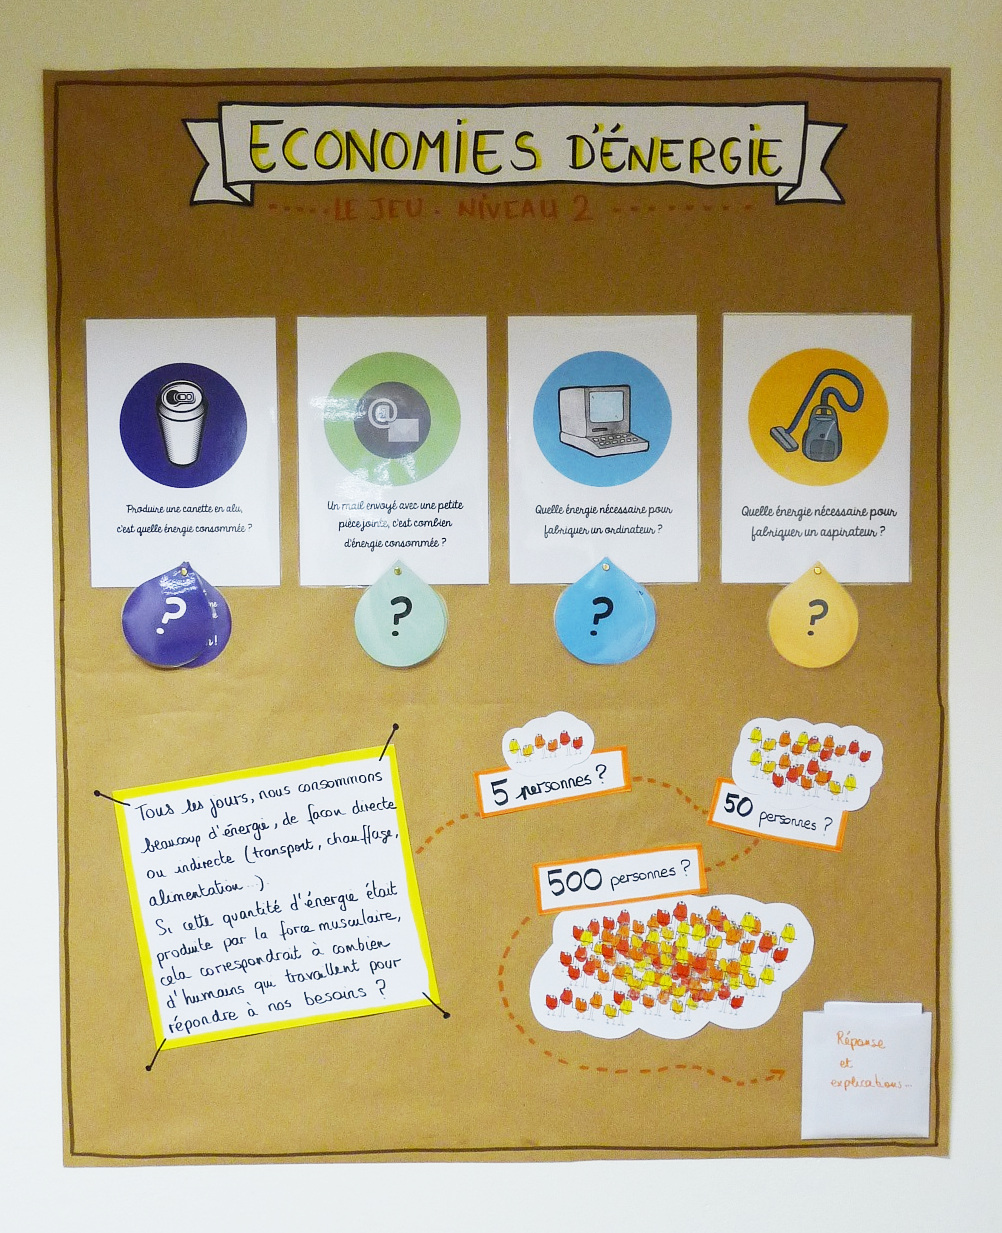 ECONOMIES D'ÉNERGIE
LE JEU. NIVEAU 2
Produire une canette en alu,
c'est quelle énergie consommée ?
Un mail envoyé avec une petite
pièce jointe, c'est combien
d'énergie consommée ?
Quelle énergie nécessaire pour
fabriquer un ordinateur ?
Quelle énergie nécessaire pour
fabriquer un aspirateur ?
?
?
?
?
Tous les jours, nous consommons
beaucoup d'énergie, de facon directe
ou indirecte (transport, chauffage,
alimentation...).
Si cette quantité d'énergie était
produite par la force musculaire,
cela correspondrait à combien
d'humains qui travaillent pour
répondre à nos besoins ?
5 personnes ?
50 personnes ?
500 personnes ?
Réponse
et
explications...